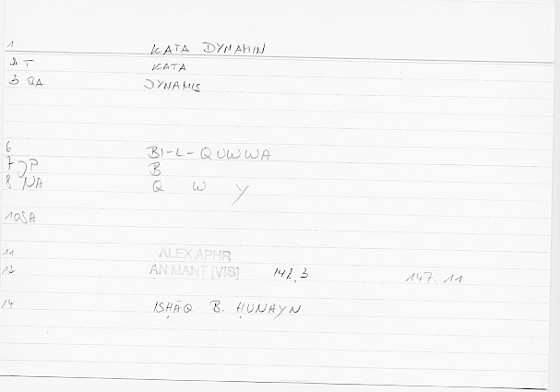 1 KATA DYNAMIN
2 T KATA
3 QA DYNAMIS
6 BI-L-QUWWA
7 JP B
8 NA Q W Y
10 SA
11 ALEX APHR
12 AN MANT [VIS] 142,3 147.11
14 ISḤĀQ B. ḤUNAYN